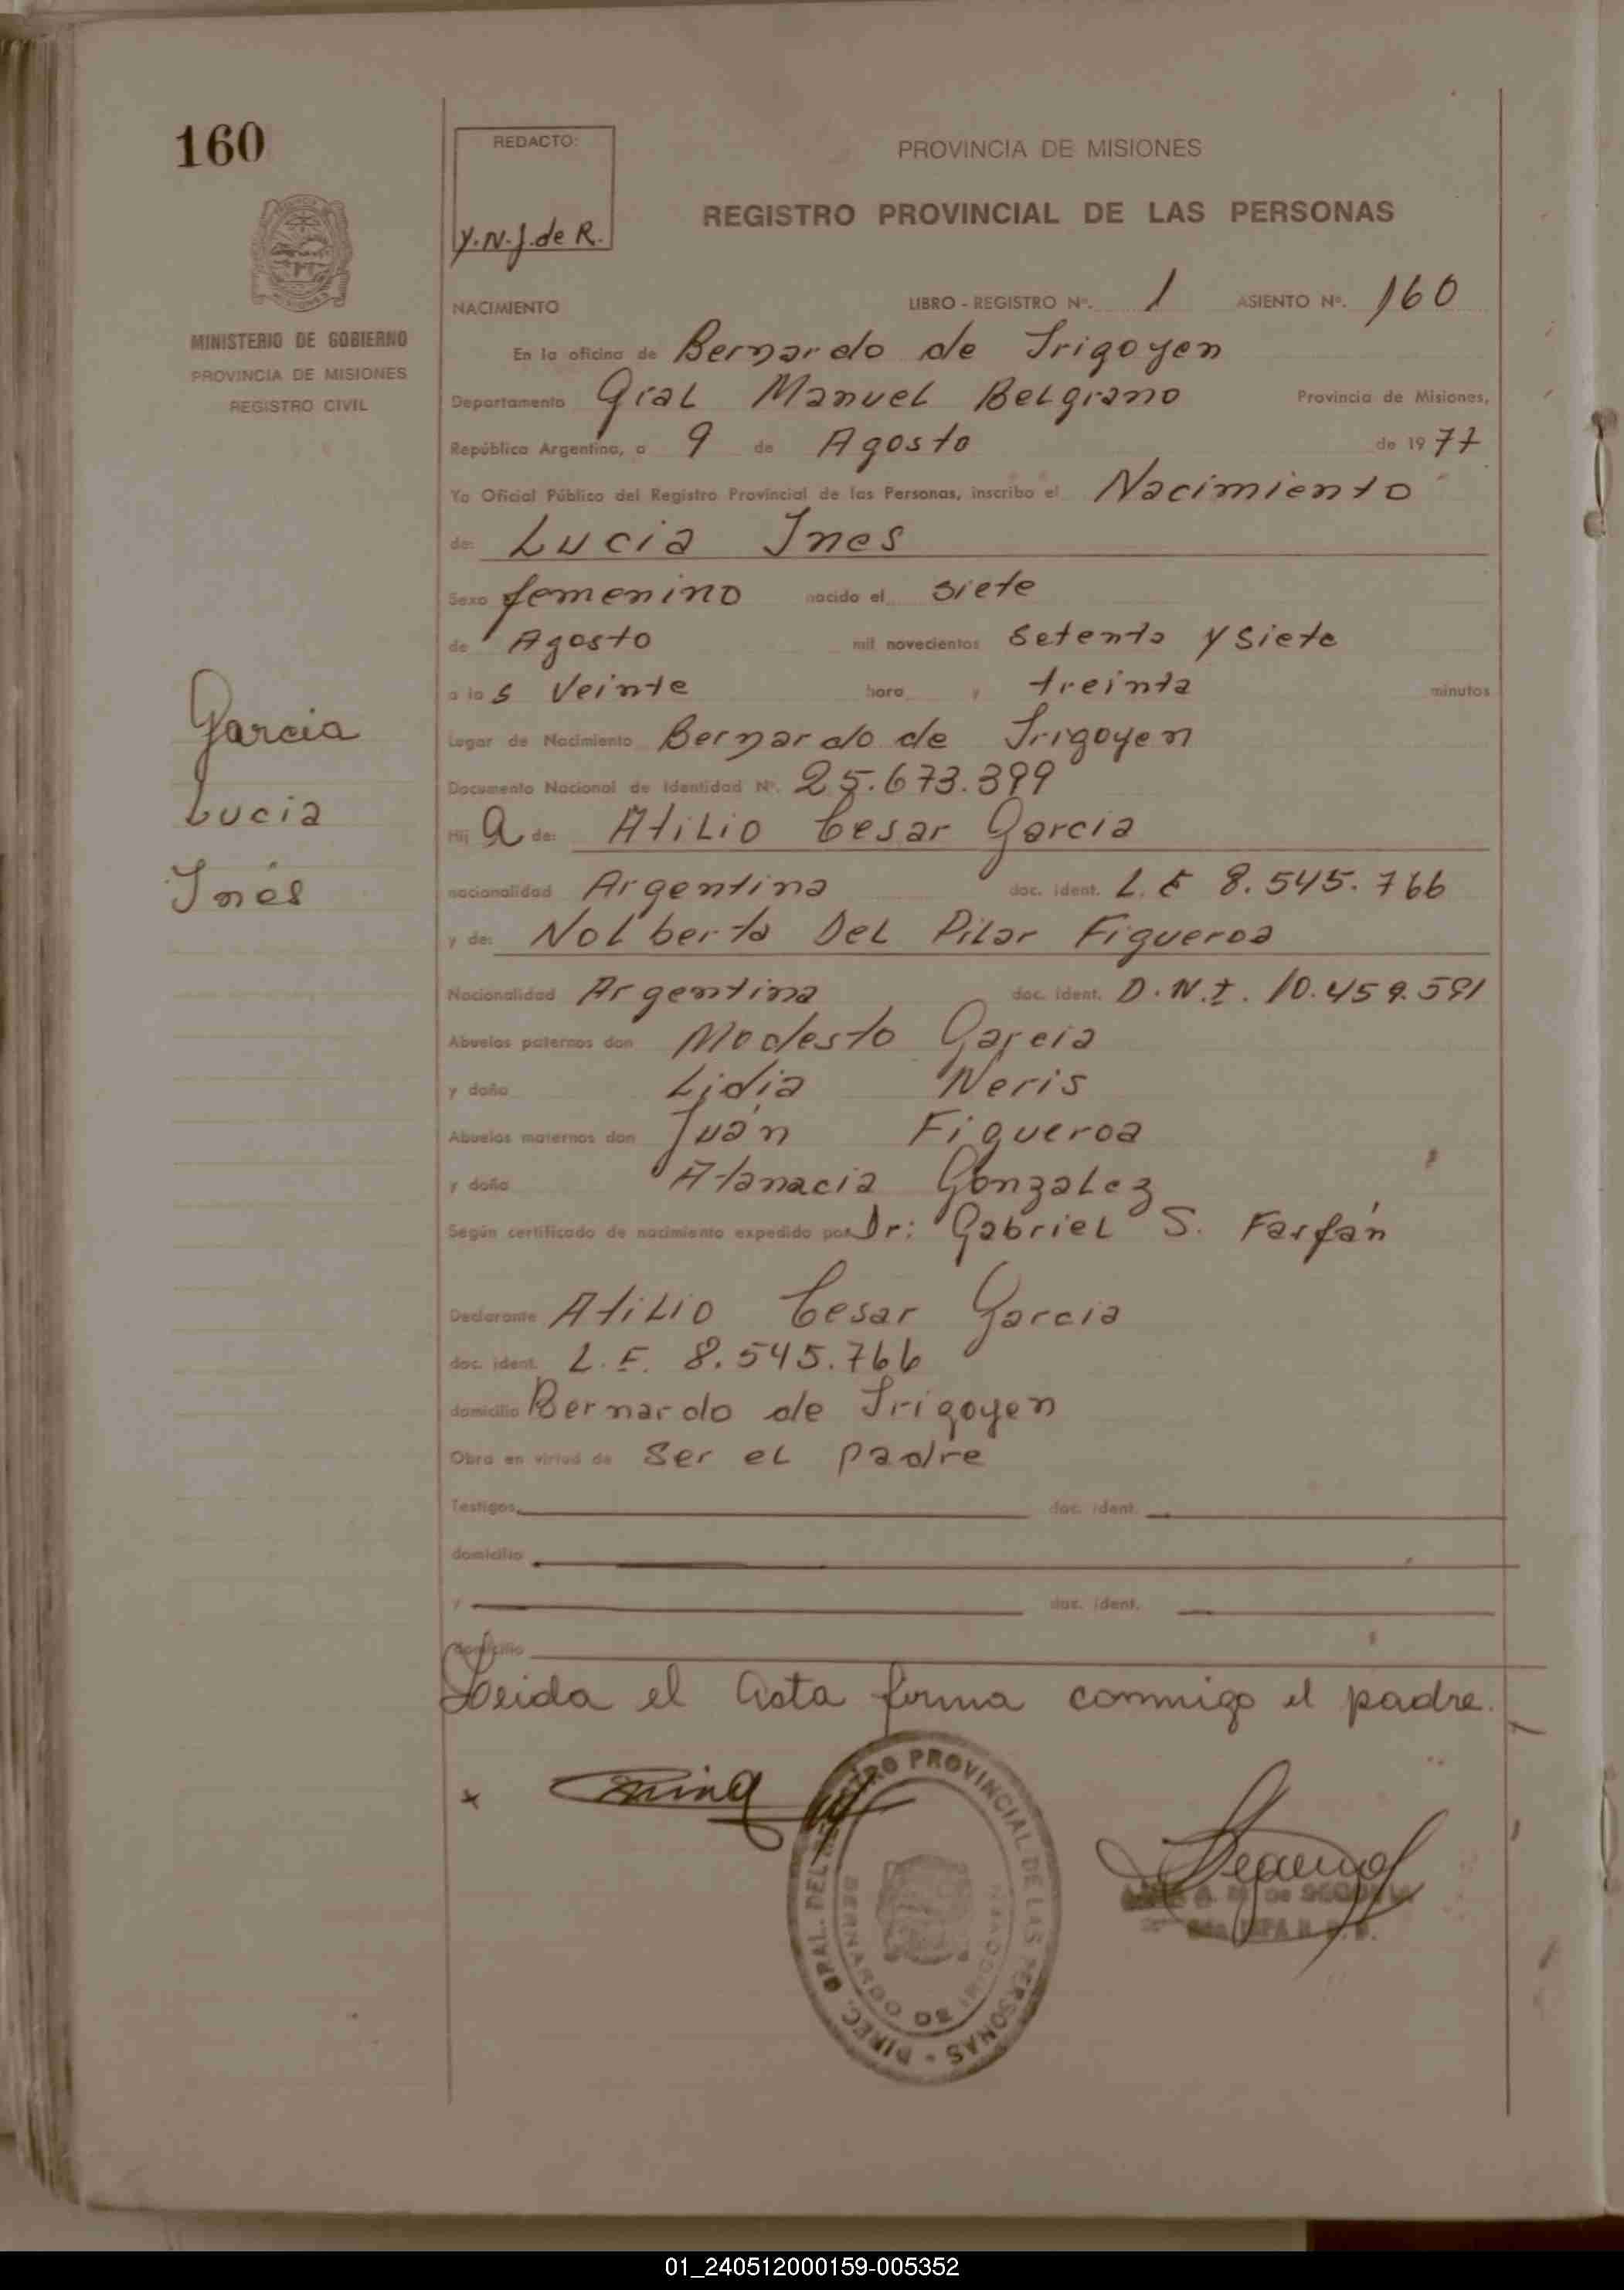 160
REDACTO:
Y.N.J. de R.
PROVINCIA DE MISIONES
REGISTRO PROVINCIAL DE LAS PERSONAS
MINISTERIO DE GOBIERNO
PROVINCIA DE MISIONES
REGISTRO CIVIL
NACIMIENTO LIBRO - REGISTRO Nº. 1 ASIENTO Nº. 160
En la oficina de Bernardo de Irigoyen
Departamento Gral Manuel Belgrano Provincia de Misiones,
República Argentina, a 9 de Agosto de 1977
Yo Oficial Público del Registro Provincial de las Personas, inscribo el Nacimiento
de: Lucia Ines
Sexo femenino nacido el siete
de Agosto mil novecientos setenta y siete
a las veinte hora y treinta minutos
Lugar de Nacimiento Bernardo de Irigoyen
Documento Nacional de Identidad Nº. 25.673.399
Hij a de: Atilio Cesar Garcia
nacionalidad Argentina doc. ident. L.E 8.545.766
y de: Nolberta Del Pilar Figueroa
Nacionalidad Argentina doc. ident. D.N.I. 10.459.591
Abuelos paternos don Modesto Garcia
y doña Lidia Neris
Abuelos maternos don Juán Figueroa
y doña Atanacia Gonzalez
Según certificado de nacimiento expedido por Dr: Gabriel S. Farfán
Declarante Atilio Cesar Garcia
doc. ident. L.E. 8.545.766
domicilio Bernardo de Irigoyen
Obra en virtud de Ser el padre
Testigos doc. ident.
domicilio
y doc. ident.
domicilio
Leida el Acta firma conmigo el padre.
Garcia
Lucia
Inés
DIREC. GRAL. DEL REGISTRO PROVINCIAL DE LAS PERSONAS
BERNARDO DE IRIGOYEN
01_240512000159-005352